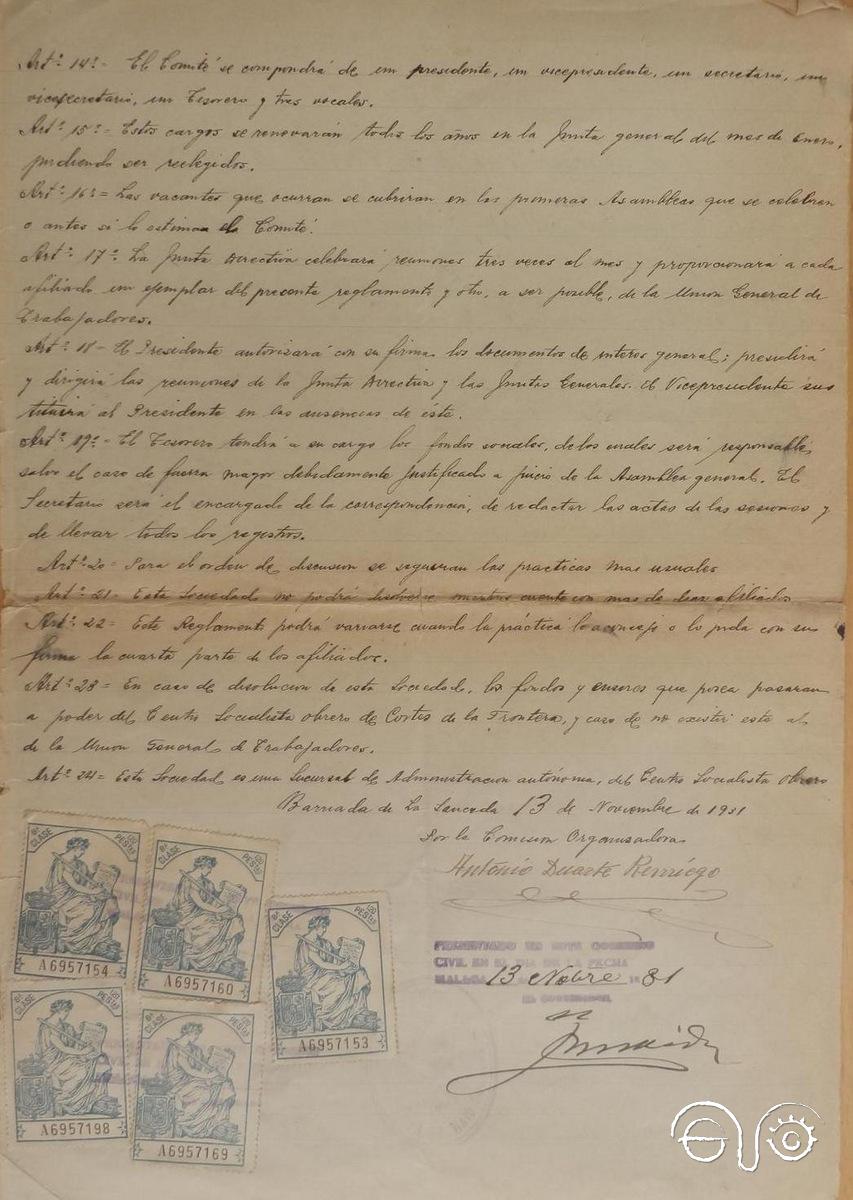 Artº 14º - El Comité se compondrá de un presidente, un vicepresidente, un secretario, un
vicesecretario, un Tesorero y tres vocales.
Artº 15º = Estos cargos se renovarán todos los años en la Junta general del mes de Enero,
pudiendo ser reelegidos.
Artº 16º = Las vacantes que ocurran se cubriran en las primeras Asambleas que se celebren
o antes si lo estiman el Comité.
Artº 17º. La Junta Directiva celebrará reuniones tres veces al mes y proporcionará a cada
afiliado un ejemplar del presente reglamento y otro, a ser posible, de la Union General de
Trabajadores.
Artº 18 - El Presidente autorisará con su firma los documentos de interes general; presidirá
y dirigirá las reuniones de la Junta Directiva y las Juntas Generales. El Vicepresidente sus
tituirá al Presidente en las ausencias de éste.
Artº 19º = El Tesorero tendrá a su cargo los fondos sociales, de los cuales será responsable,
salvo el caso de fuerza mayor debidamente justificado a juicio de la Asamblea general. El
Secretario será el encargado de la correspondencia, de redactar las actas de las sesiones y
de llevar todos los registros.
Artº 20 = Para el orden de discusion se seguiran las practicas mas usuales
Artº 21 = Esta Sociedad no podrá disolverse mientras cuente con mas de diez afiliados
Artº 22 = Este Reglamento podrá variarse cuando la práctica lo aconseje o lo pida con su
firma la cuarta parte de los afiliados.
Artº 23 = En caso de disolucion de esta Sociedad, los fondos y enseres que posea pasaran
a poder del Centro Socialista obrero de Cortes de la Frontera, y caso de no existir este al
de la Union General de Trabajadores.
Artº 24 = Esta Sociedad es una Sucursal de Administracion autónoma, del Centro Socialista obrero
Barriada de La Sauceda 13 de Noviembre de 1931
Por la Comision Organisadora
António Duarte Remiégo
PRESENTADO EN ESTE GOBIERNO
CIVIL EN EL DIA DE LA FECHA
MALAGA 13 Nobre 1931
EL GOBERNADOR,
8ª CLASE 1'20 PESETAS
A6957154
8ª CLASE 1'20 PESETAS
A6957160
8ª CLASE 1'20 PESETAS
A6957153
8ª CLASE 1'20 PESETAS
A6957198
8ª CLASE 1'20 PESETAS
A6957169